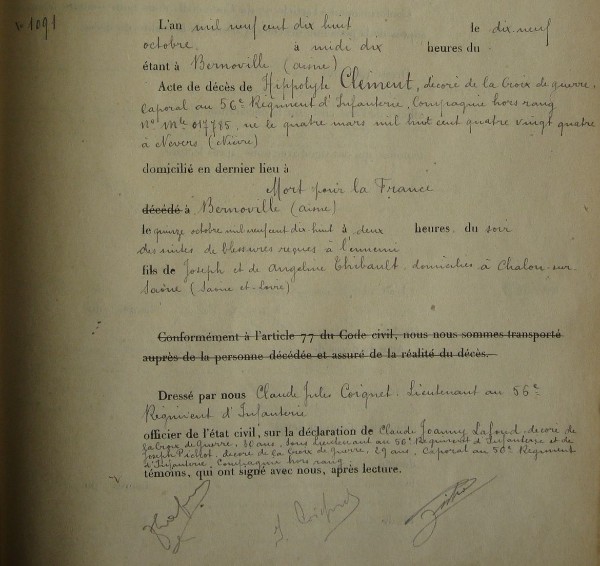 N° 1091
L'an mil neuf cent dix huit le dix neuf
octobre à midi dix heures du
étant à Bernoville (aisne)
Acte de décès de Hippolyte Clément, décoré de la Croix de guerre,
Caporal au 56e Régiment d'Infanterie, Compagnie hors rang
No Mle 017785, né le quatre mars mil huit cent quatre vingt quatre
à Nevers (Nièvre)
domicilié en dernier lieu à
Mort pour la France
décédé à Bernoville (aisne)
le quinze octobre mil neuf cent dix huit à deux heures du soir
des suites de blessures reçues à l'ennemi
fils de Joseph et de Angeline Thibault domiciliés à Chalon-sur-
Saône (Saône-et-Loire)
Conformément à l'article 77 du Code civil, nous nous sommes transporté
auprès de la personne décédée et assuré de la réalité du décès.
Dressé par nous Claude Jules Coignet Lieutenant au 56e
Régiment d'Infanterie
officier de l'état civil, sur la déclaration de Claude Joanny Lafond décoré de
la Croix de guerre, ans, sous Lieutenant au 56e Régiment d'Infanterie et de
Joseph décoré de la Croix de guerre, 29 ans, Caporal au 56e Régiment
d'Infanterie, Compagnie hors rang
témoins, qui ont signé avec nous, après lecture.